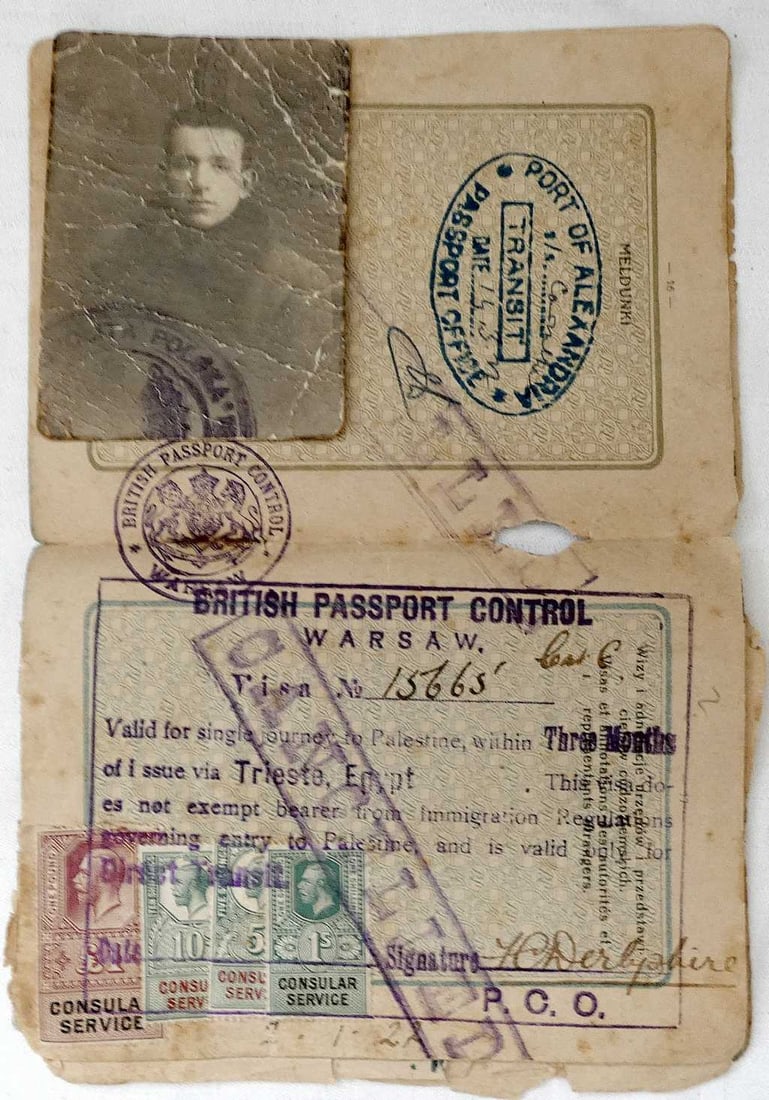 — 16 —
MELDUNKI
PORT OF ALEXANDRIA
TRANSIT
DATE
PASSPORT OFFICE
POLSKA
BRITISH PASSPORT CONTROL
WARSAW
BRITISH PASSPORT CONTROL
WARSAW.
Visa No 15665
Valid for single journey to Palestine, within Three Months
of issue via Trieste, Egypt. This visa do-
es not exempt bearer from Immigration Regulations
governing entry to Palestine, and is valid only for
Direct Transit.
Date
Signature H C Derbyshire
P. C. O.
CANCELLED
Wizy i adnotacje urzędów i przedstawi-
cielstw cudzoziemskich.
Visas et annotations des autorités et
représentants étrangers.
ONE POUND
£1
CONSULA
SERVICE
10
CONSU
SERV
5
CONSU
SERV
1s
CONSULAR
SERVICE